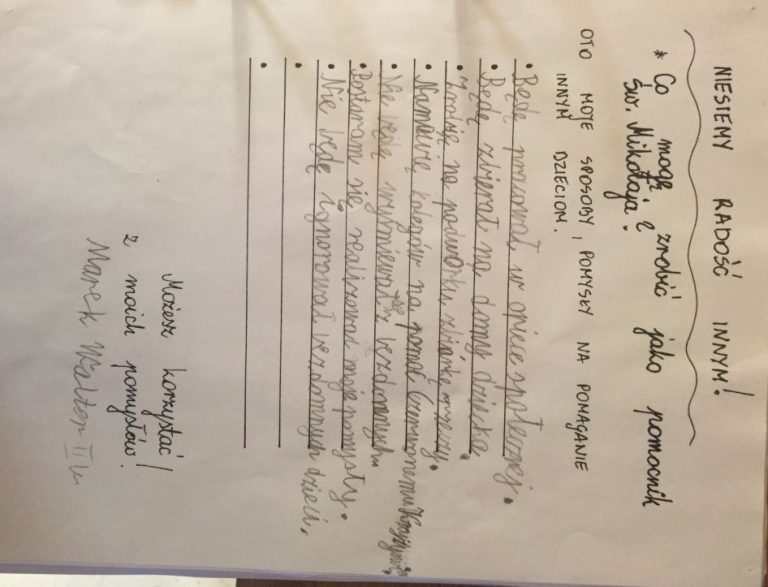 NIESIEMY RADOŚĆ INNYM!
* Co mogę zrobić jako pomocnik
Św. Mikołaja?
OTO MOJE SPOSOBY, POMYSŁY NA POMAGANIE
INNYM DZIECIOM.
• Będę pracował w opiece społecznej.
• Będę zbierał na domy dziecka.
• na podwórku zbiórkę rzeczy.
• Namówię kolegów na pomoc Czerwonemu Krzyżowi.
• Nie będę wyśmiewał się z bezdomnych.
• Postaram się realizować moje pomysły.
• Nie będę ignorował bezdomnych dzieci.
•
•
Możesz korzystać
z moich pomysłów!
Marek Walter II b